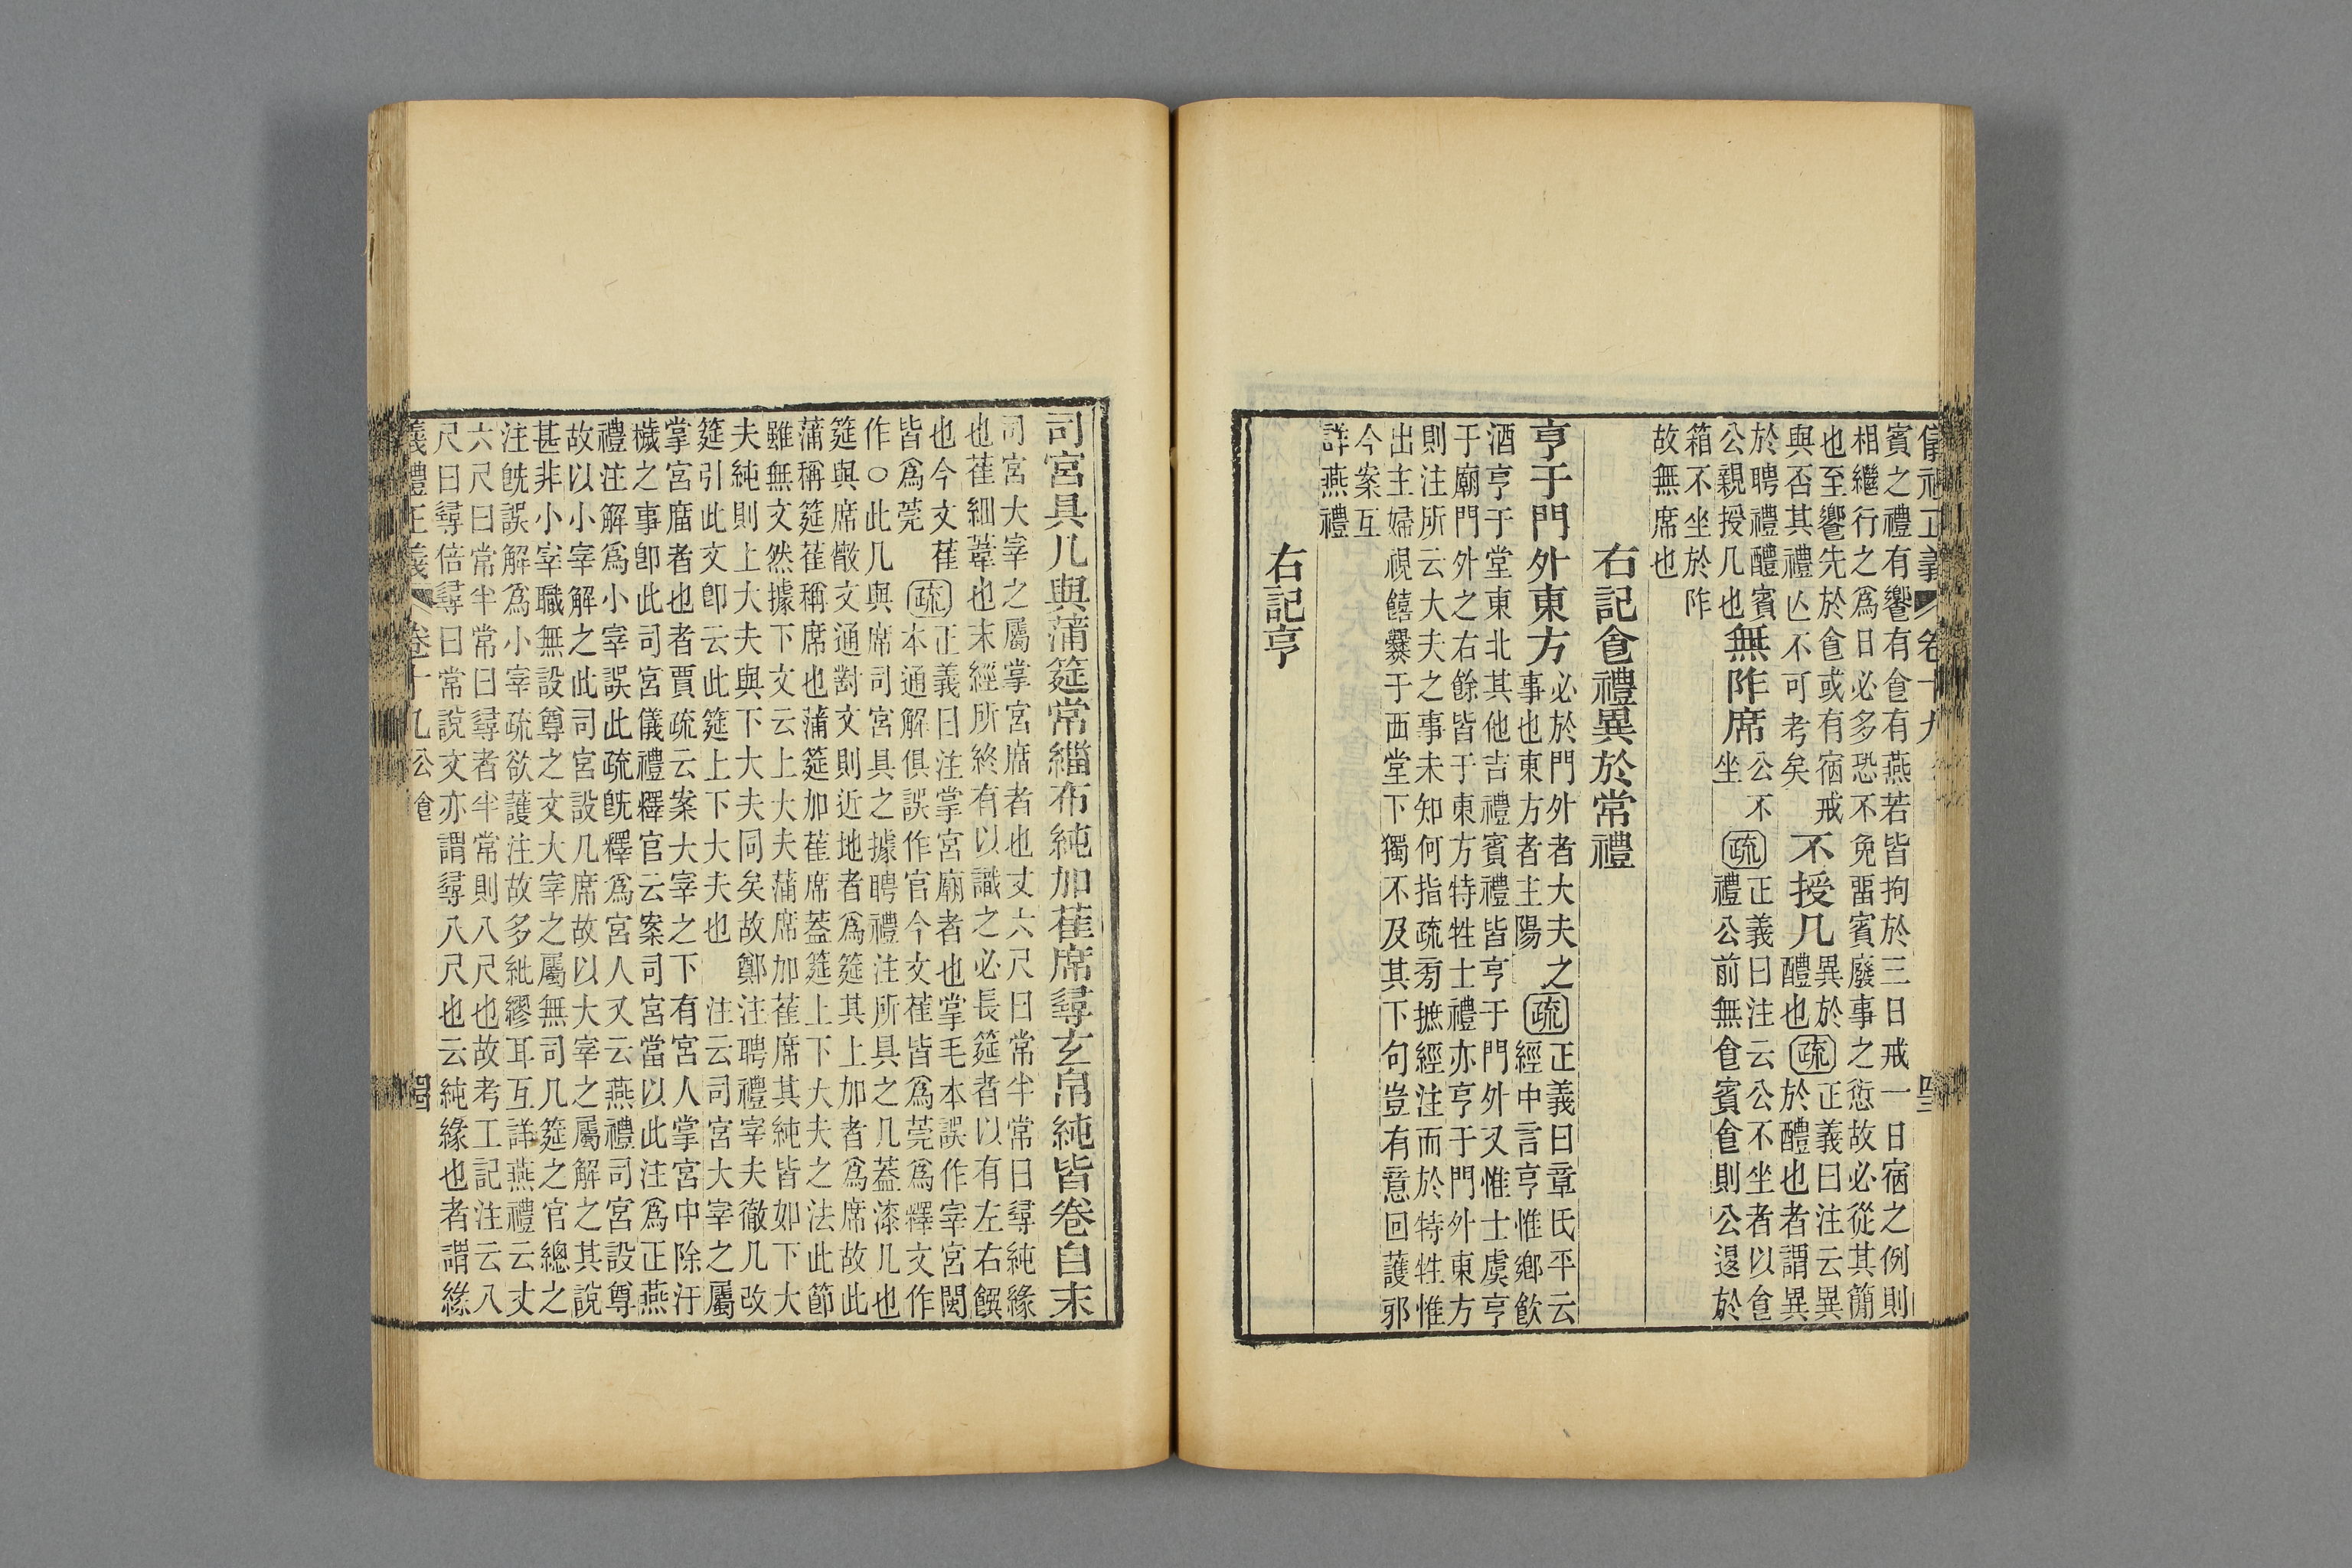 儀禮正義 卷十九 四三
賓之禮有饗有食有燕若皆拘於三日戒一日宿之例則
相繼行之為日必多恐不免畱賓廢事之愆故必從其簡
也至饗先於食或有宿戒
與否其禮亾不可考矣
不授几
異於
醴也
疏
正義曰注云異
於醴也者謂異
於聘禮醴賓
公親授几也
無阼席
公不
坐
疏
正義曰注云公不坐者以食
禮公前無食賓食則公退於
箱不坐於阼
故無席也
右記食禮異於常禮
亨于門外東方
必於門外者大夫之
事也東方者主陽
疏
正義曰章氏平云
經中言亨惟鄉飲
酒亨于堂東北其他吉禮賓禮皆亨于門外又惟士虞亨
于廟門外之右餘皆于東方特牲士禮亦亨于門外東方
則注所云大夫之事未知何指疏旁摭經注而於特牲惟
出主婦視饎爨于西堂下獨不及其下句豈有意回護邪
今案互
詳燕禮
右記亨
司宮具几與蒲筵常緇布純加萑席尋玄帛純皆卷自末
司宮大宰之屬掌宮廗者也丈六尺曰常半常曰尋純緣
也萑細葦也末經所終有以識之必長筵者以有左右饌
也今文萑
皆爲莞
疏
正義曰注掌宮廟者也掌毛本誤作宰宮閩
本通解俱誤作官今文萑皆爲莞爲釋文作
作○此几與席司宮具之據聘禮注所具之几蓋漆几也
筵與席散文通對文則近地者爲筵其上加者爲席故此
蒲稱筵萑稱席也蒲筵加萑席蓋筵上下大夫之法此節
雖無文然據下文云上大夫蒲席加萑席其純皆如下大
夫純則上大夫與下大夫同矣故鄭注聘禮宰夫徹几改
筵引此文卽云此筵上下大夫也 注云司宮大宰之屬
掌宮廗者也者賈疏云案大宰之下有宮人掌宮中除汙
穢之事卽此司宮儀禮釋官云案司宮當以此注爲正燕
禮注解爲小宰誤此疏旣釋爲宮人又云燕禮司宮設尊
故以小宰解之此司宮設几席故以大宰之屬解之其說
甚非小宰職無設尊之文大宰之屬無司几筵之官總之
注旣誤解爲小宰疏欲護注故多紕繆耳互詳燕禮云丈
六尺曰常半常曰尋者半常則八尺也故考工記注云八
尺曰尋倍尋曰常說文亦謂尋八尺也云純緣也者謂緣
義禮正義 卷十九 公食 四四